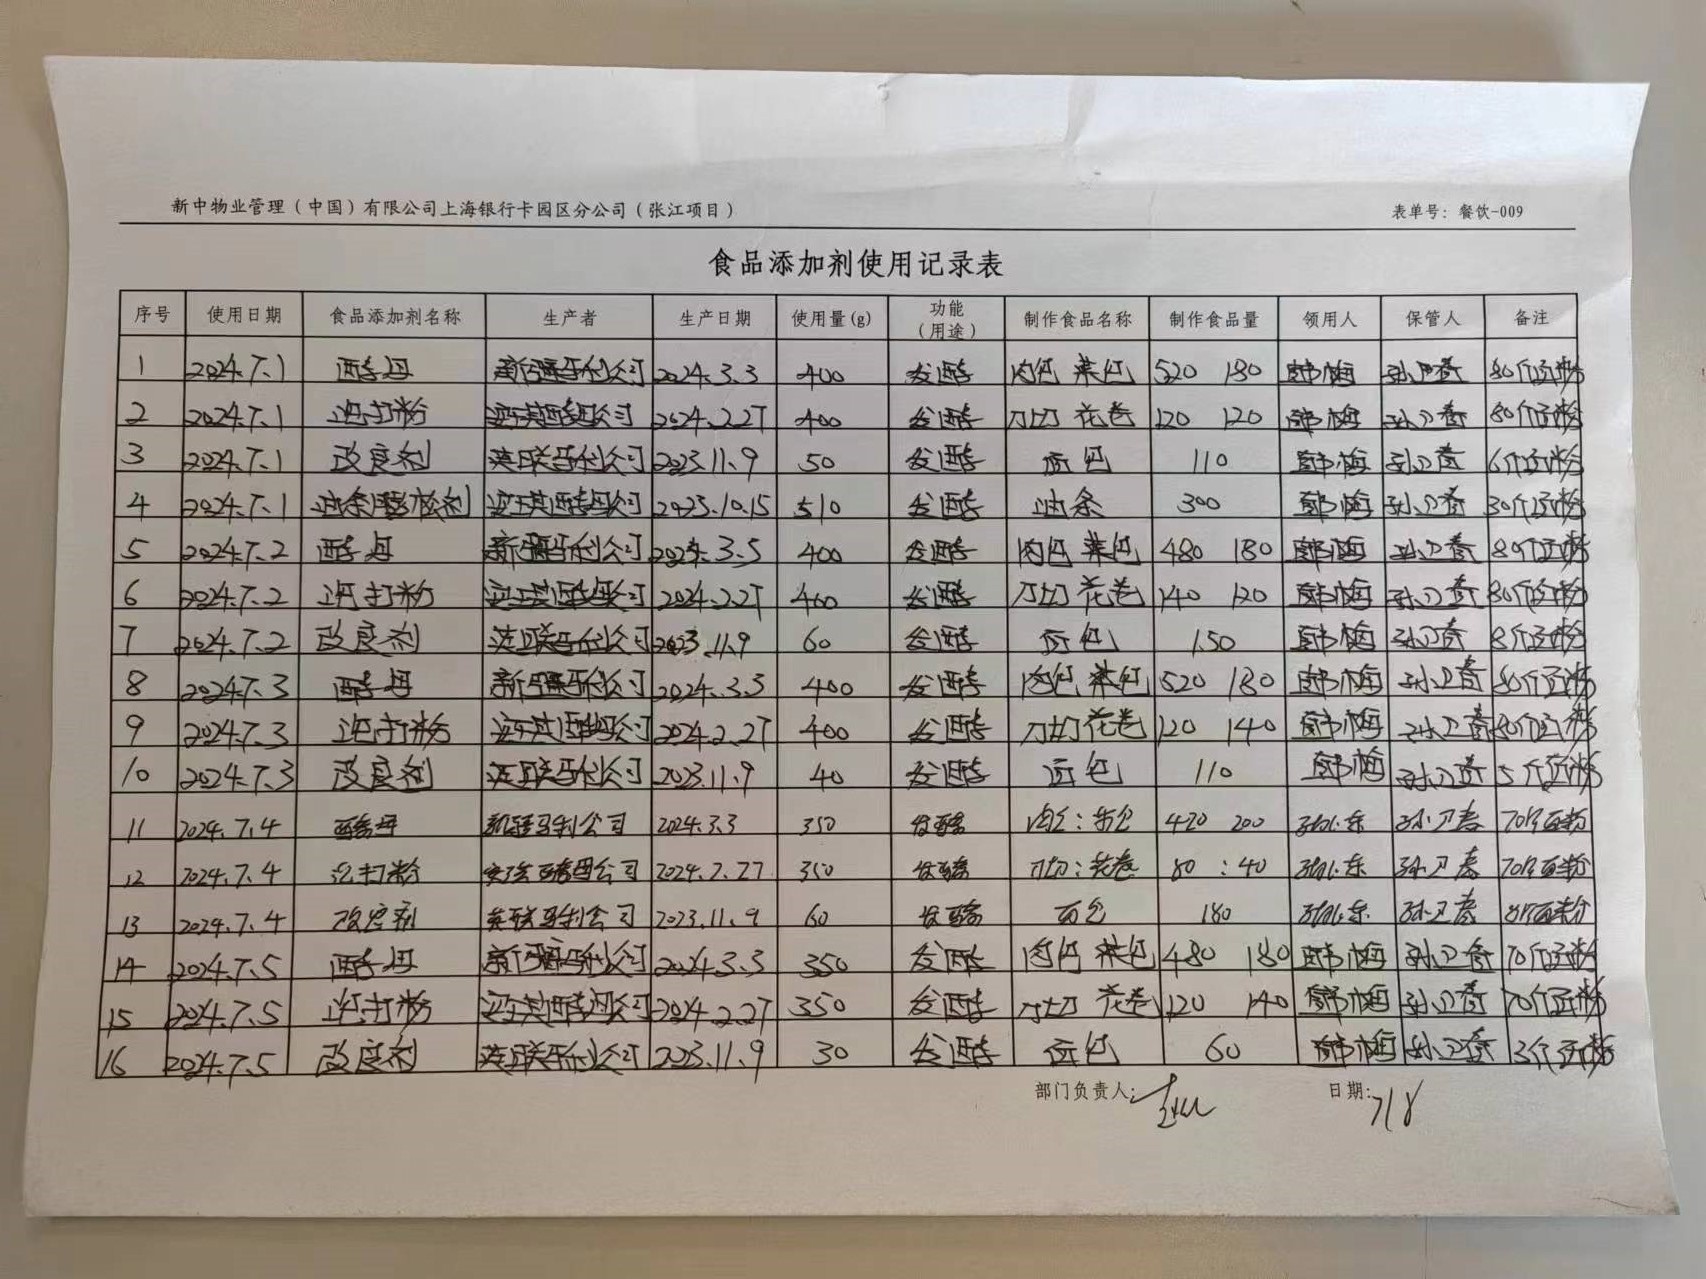 新中物业管理（中国）有限公司上海银行卡园区分公司（张江项目） 表单号：餐饮-009
食品添加剂使用记录表
序号 使用日期 食品添加剂名称 生产者 生产日期 使用量(g) 功能（用途） 制作食品名称 制作食品量 领用人 保管人 备注
1 2024.7.1 酵母 新疆马利公司 2024.3.3 400 发酵 肉包 菜包 520 180 韩梅 孙卫春 80斤面粉
2 2024.7.1 泡打粉 酵母公司 2024.2.27 400 发酵 刀切 花卷 120 120 韩梅 孙卫春 80斤面粉
3 2024.7.1 改良剂 英联马利公司 2023.11.9 50 发酵 面包 110 韩梅 孙卫春 6斤面粉
4 2024.7.1 油条膨松剂 酵母公司 2023.10.15 510 发酵 油条 300 韩梅 孙卫春 30斤面粉
5 2024.7.2 酵母 新疆马利公司 2024.3.5 400 发酵 肉包 菜包 480 180 韩梅 孙卫春 80斤面粉
6 2024.7.2 泡打粉 酵母公司 2024.2.27 400 发酵 刀切 花卷 140 120 韩梅 孙卫春 80斤面粉
7 2024.7.2 改良剂 英联马利公司 2023.11.9 60 发酵 面包 150 韩梅 孙卫春 8斤面粉
8 2024.7.3 酵母 新疆马利公司 2024.3.3 400 发酵 肉包 菜包 520 180 韩梅 孙卫春 80斤面粉
9 2024.7.3 泡打粉 酵母公司 2024.2.27 400 发酵 刀切 花卷 120 140 韩梅 孙卫春 80斤面粉
10 2024.7.3 改良剂 英联马利公司 2023.11.9 40 发酵 面包 110 韩梅 孙卫春 5斤面粉
11 2024.7.4 酵母 新疆马利公司 2024.3.3 350 发酵 肉包：菜包 420 200 孙卫春 70斤面粉
12 2024.7.4 泡打粉 酵母公司 2024.2.27 350 发酵 刀切：花卷 80 : 40 孙卫春 70斤面粉
13 2024.7.4 改良剂 英联马利公司 2023.11.9 60 发酵 面包 180 孙卫春 8斤面粉
14 2024.7.5 酵母 新疆马利公司 2024.3.3 350 发酵 肉包 菜包 480 180 韩梅 孙卫春 70斤面粉
15 2024.7.5 泡打粉 酵母公司 2024.2.27 350 发酵 刀切 花卷 120 140 韩梅 孙卫春 70斤面粉
16 2024.7.5 改良剂 英联马利公司 2023.11.9 30 发酵 面包 60 韩梅 孙卫春 3斤面粉
部门负责人： 日期：7/8